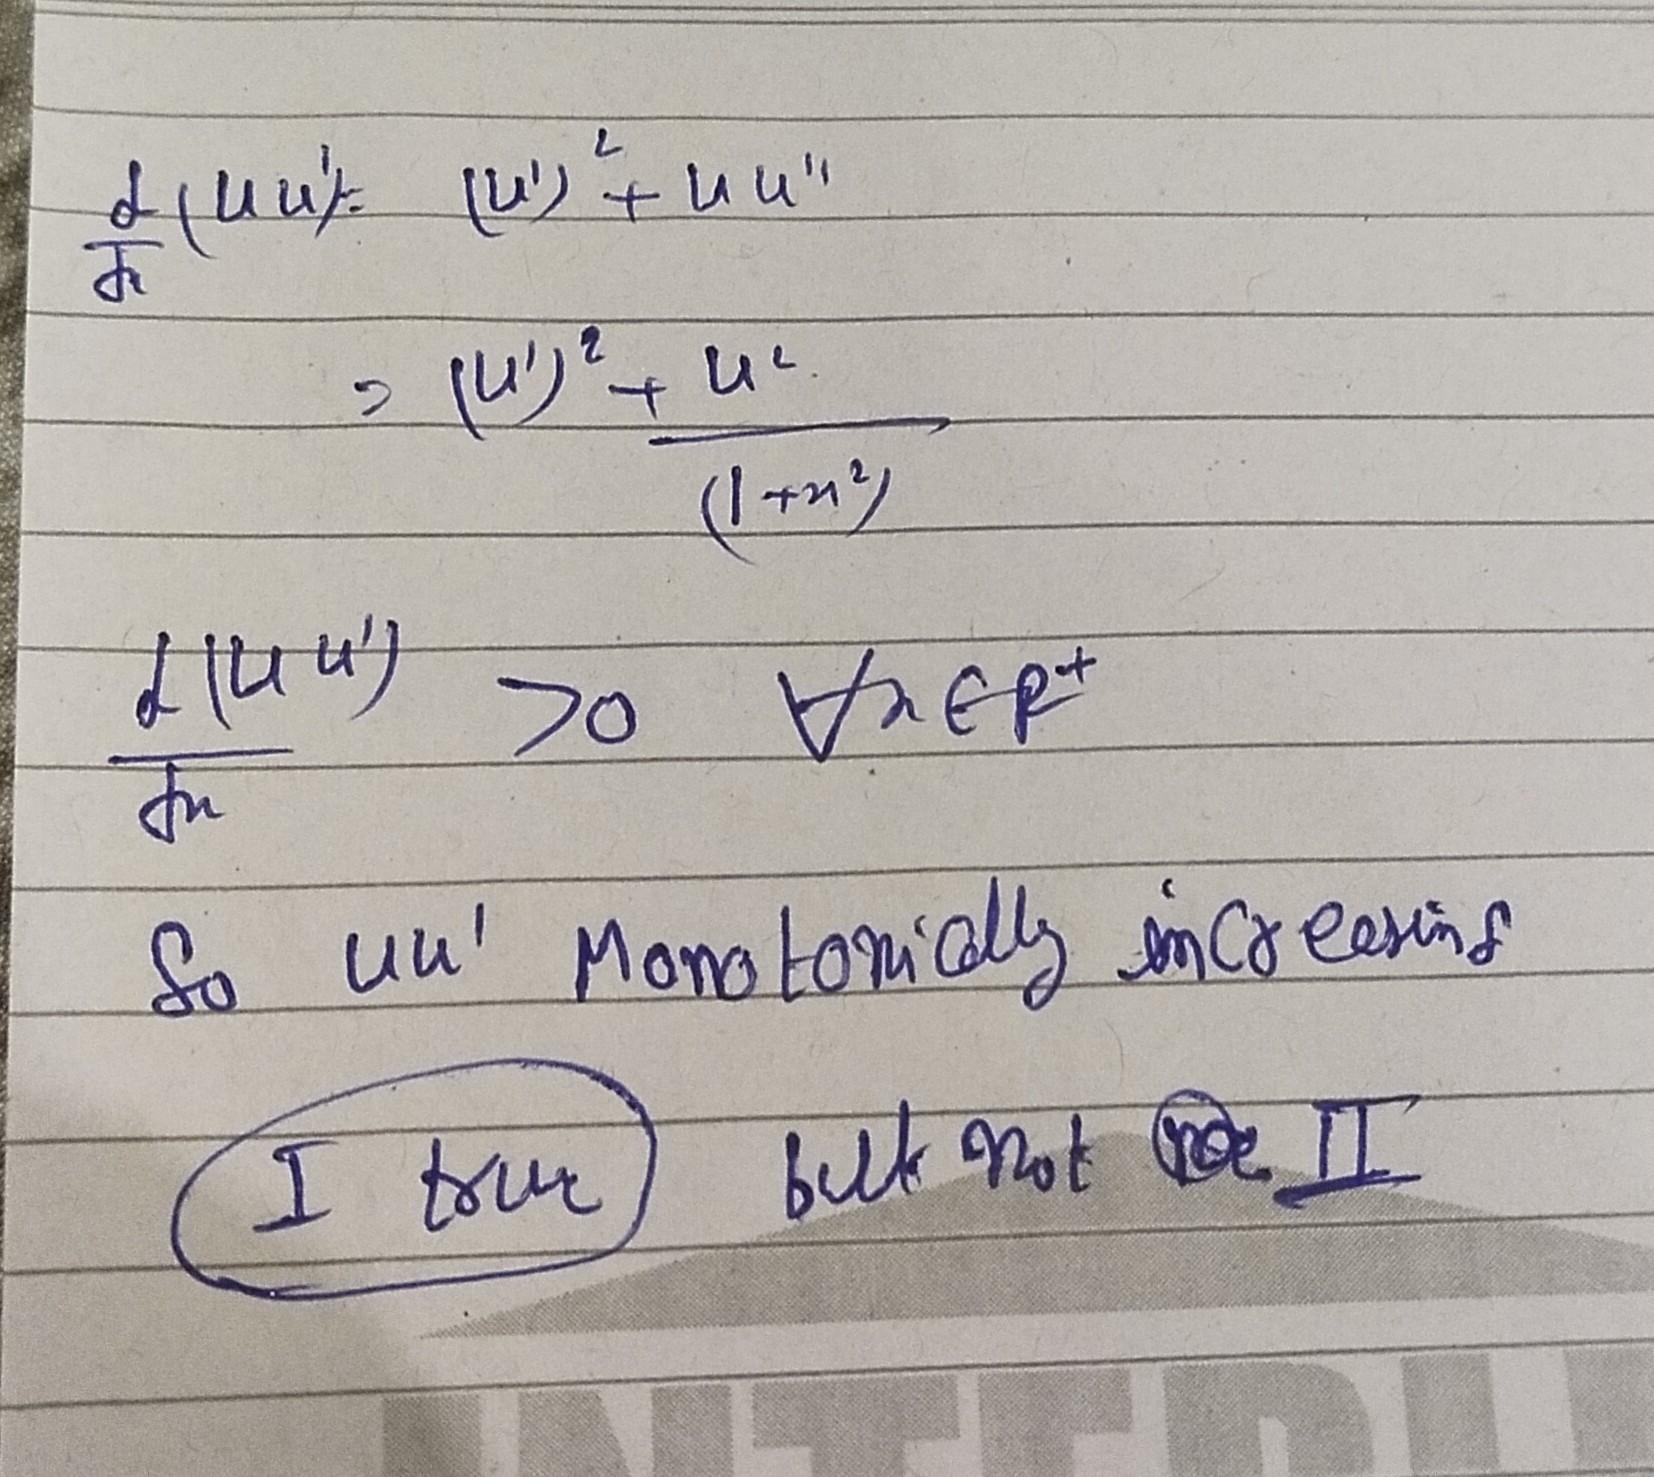 d/dx (uu') = (u')² + uu''
= (u')² + u²/(1+x²)
d(uu')/dx >0 ∀x∈R⁺
So uu' Monotonically increasing
I true but not II